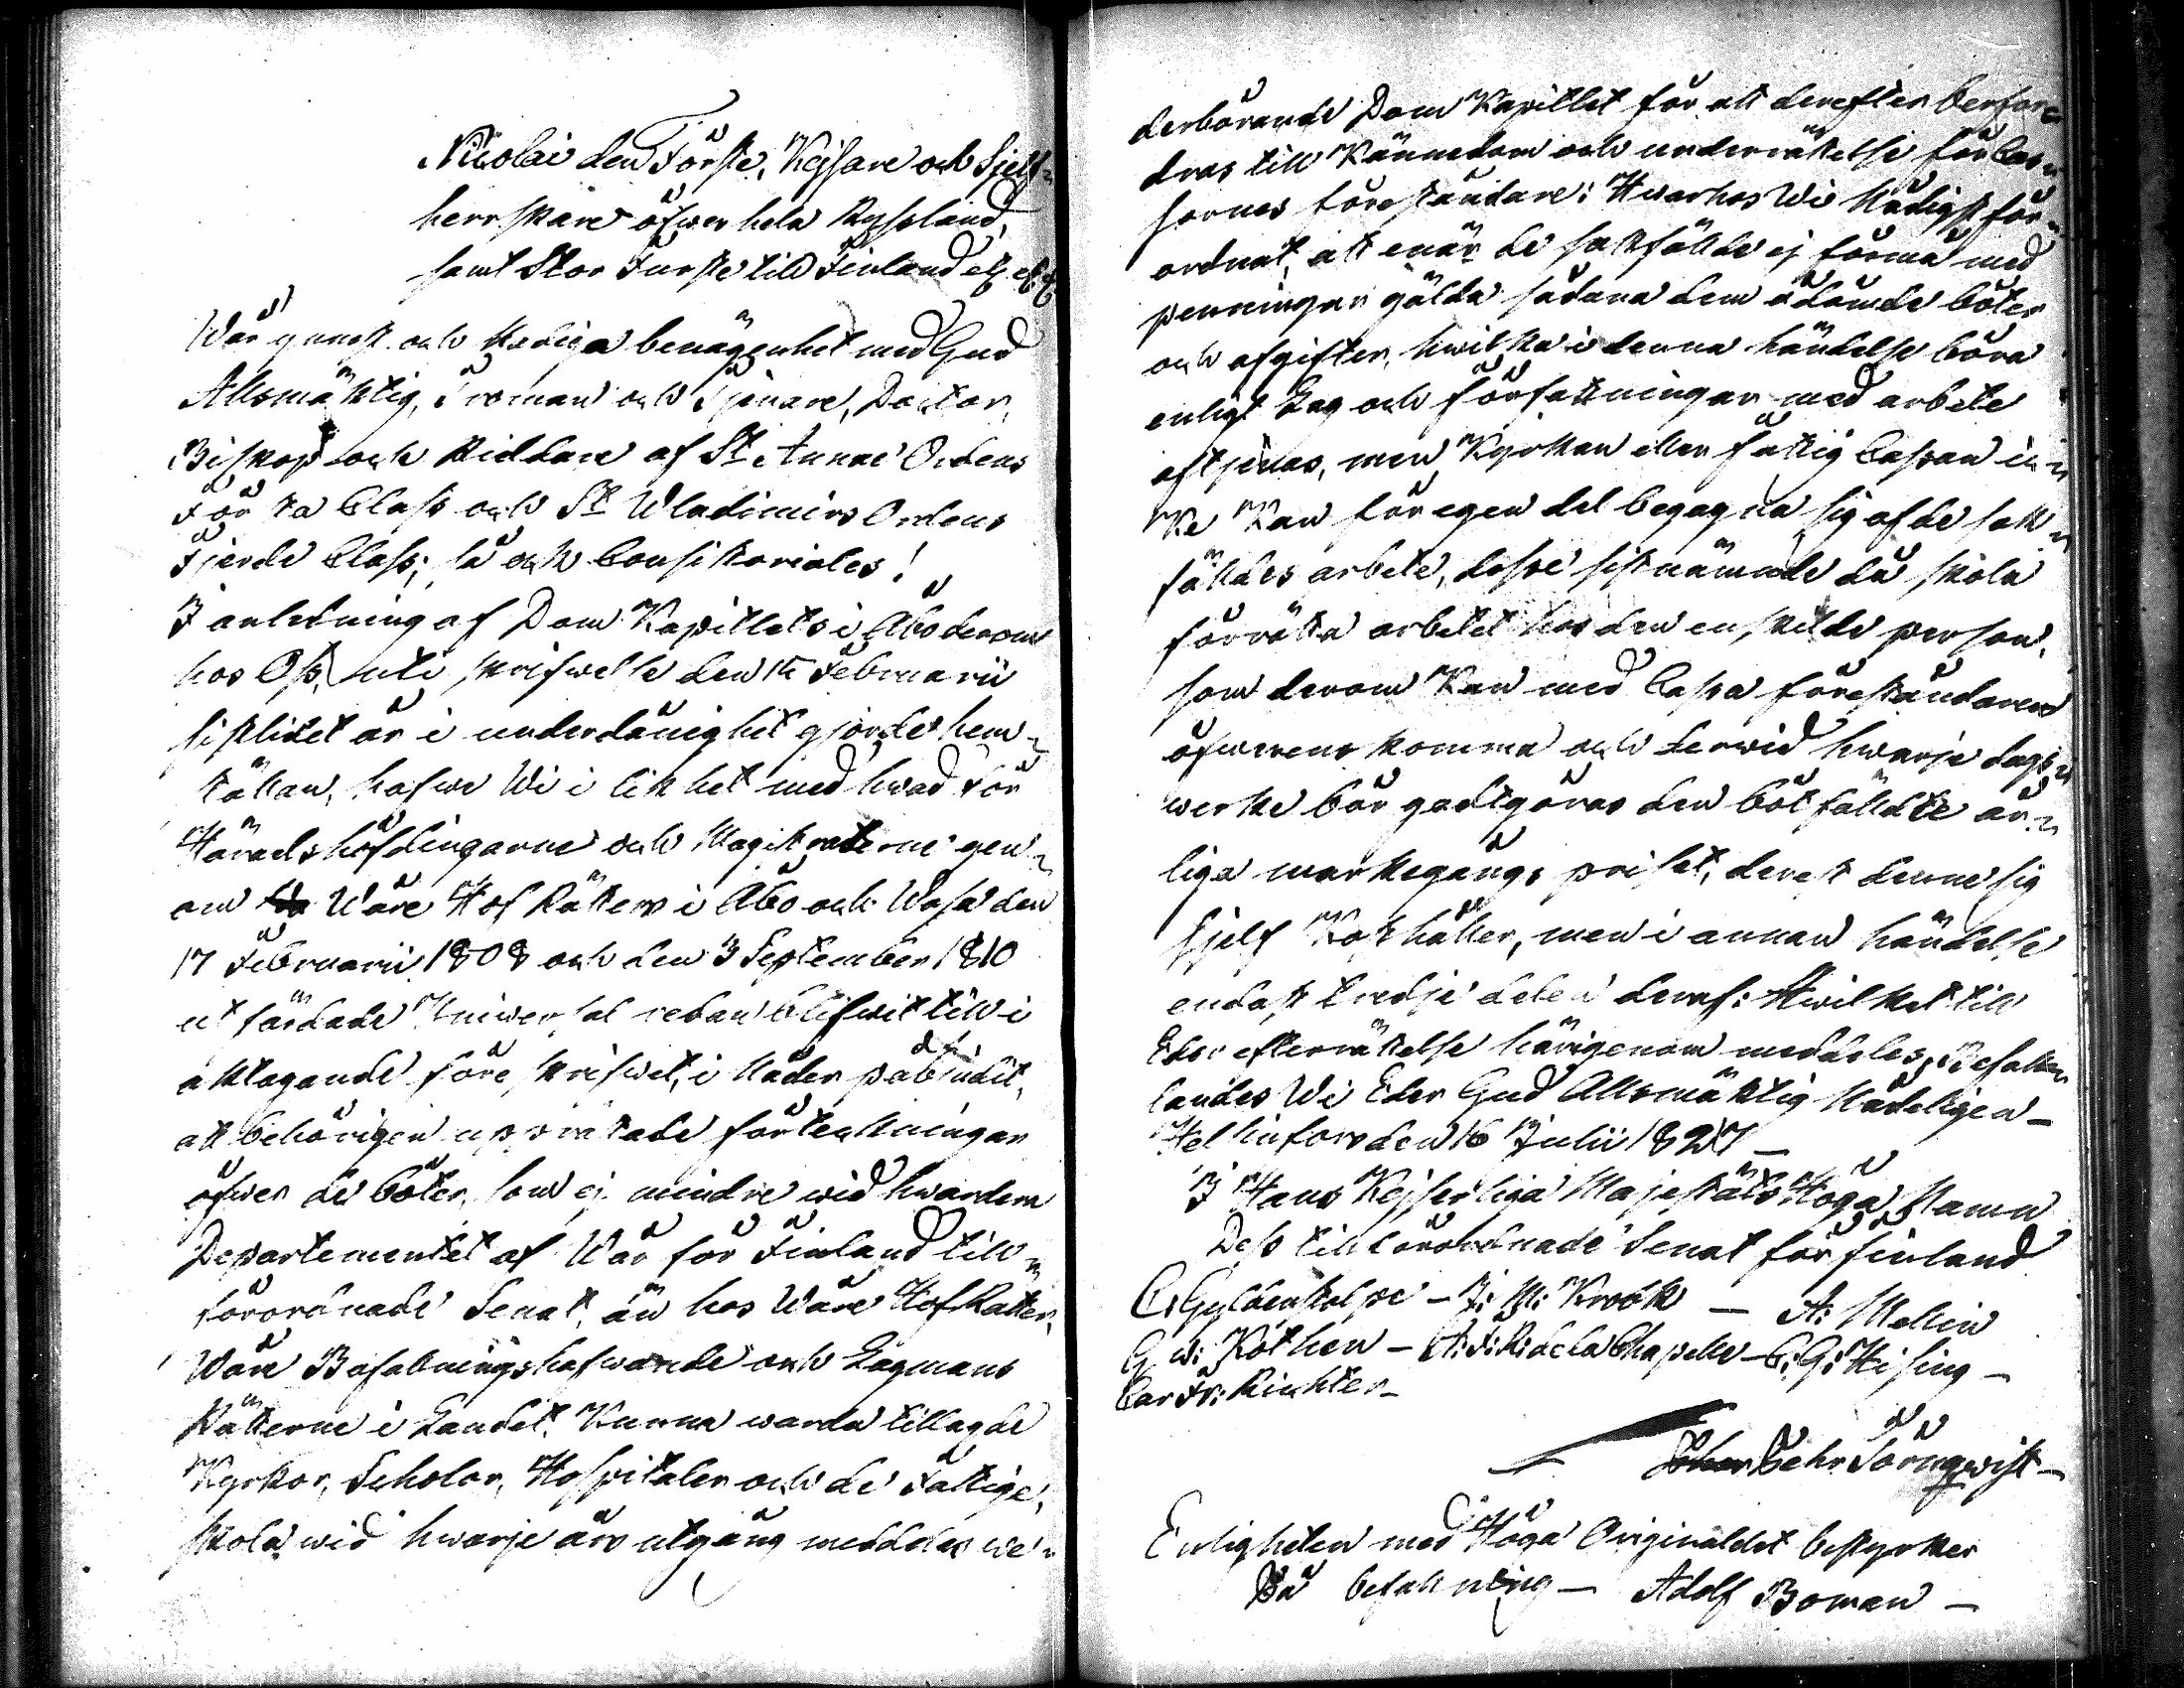 Nicolai den Förste, Kejsare och Sjelf-
herrskare öfwer hela Ryssland,
samt Stor Furste till Finland etc. etc. etc.
Wår ynnest och Nådiga benägenhet med Gud
Allsmäktig, Troman och Tjenare, Doctor,
Biskop och Riddare af St Annae Ordens
Första Class och St Wladimirs Ordens
Fjerde Class; så ock Consistoriales!
I anledning af Dom Kapitlets i Åbo derom
hos Oss, uti skrifwelse den 15 Februarii
sistlidet år i underdånighet gjorde hem-
ställan, hafwe Wi i likhet med hwad för
Häradshöfdingarne och Magistraterne gen-
om Wåre Hof Rätters i Åbo och Wasa den
17 Februarii 1808 och den 3 September 1810
utfärdade Universal redan blifwit till i
akttagande föreskrifwet, i Nåder påbjudit,
att behörigen upprättade förteckningar
öfwer de böter, som ej mindre wid hwardera
Departementet af Wår för Finland till-
förordnade Senat, än hos Wåre Hof Rätter,
Wåre Befallningshafwande och Lagmans
Rätterne i Landet, kunna warda tillagde
Kyrkor, Scholor, Hospitaler och de Fattige,
skola wid hwarje års utgång meddelas we-
derbörande Dom Kapitlet för att derefter berfor-
dras till kännedom och underrättelse för Cas-
sornes föreståndare: Hwarhos Wi Nådigst för-
ordnat, att enär de sakfällde ej förmå med
penningar gälda sådana dem ådömde böter
och afgifter, hwilka i denna händelse böra
enligt Lag och författningar med arbete
aftjenas, men Kyrkan eller fattig Cassan ic-
ke kan för egen del begagna sig af de sak-
fälldes arbete, desse sistnämnde då skola
förrätta arbetet hos den enskilde person,
som derom kan med Cassa föreståndaren
öfwerens komma och derwid hwarje dags-
werke bör godtgöras den bötfällde år-
liga markegångs priset, derest denne sig
sjelf kosthåller, men i annan händelse
endast tredje delen deraf: Hwilket till
Eder efterrättelse härigenom meddeles; Befallan-
landes Wi Eder Gud Allsmäktig Nådeligen –
Helsinfors den 16 Julii 1827 –
I Hans Kejserliga Majestäts Höga Namn
Dess tillförordnade Senat för Finland
C: Gyldenstolpe – J: M: Krook – A: Mellin
G w: Kothen – A: F: R: de la Chapelle – C: G: Hising –
Carl Fr: Richter –
Fehr Törnqwist –
Enligheten med Höga Originaldet bestyrker
På befallning – Adolf Boman –